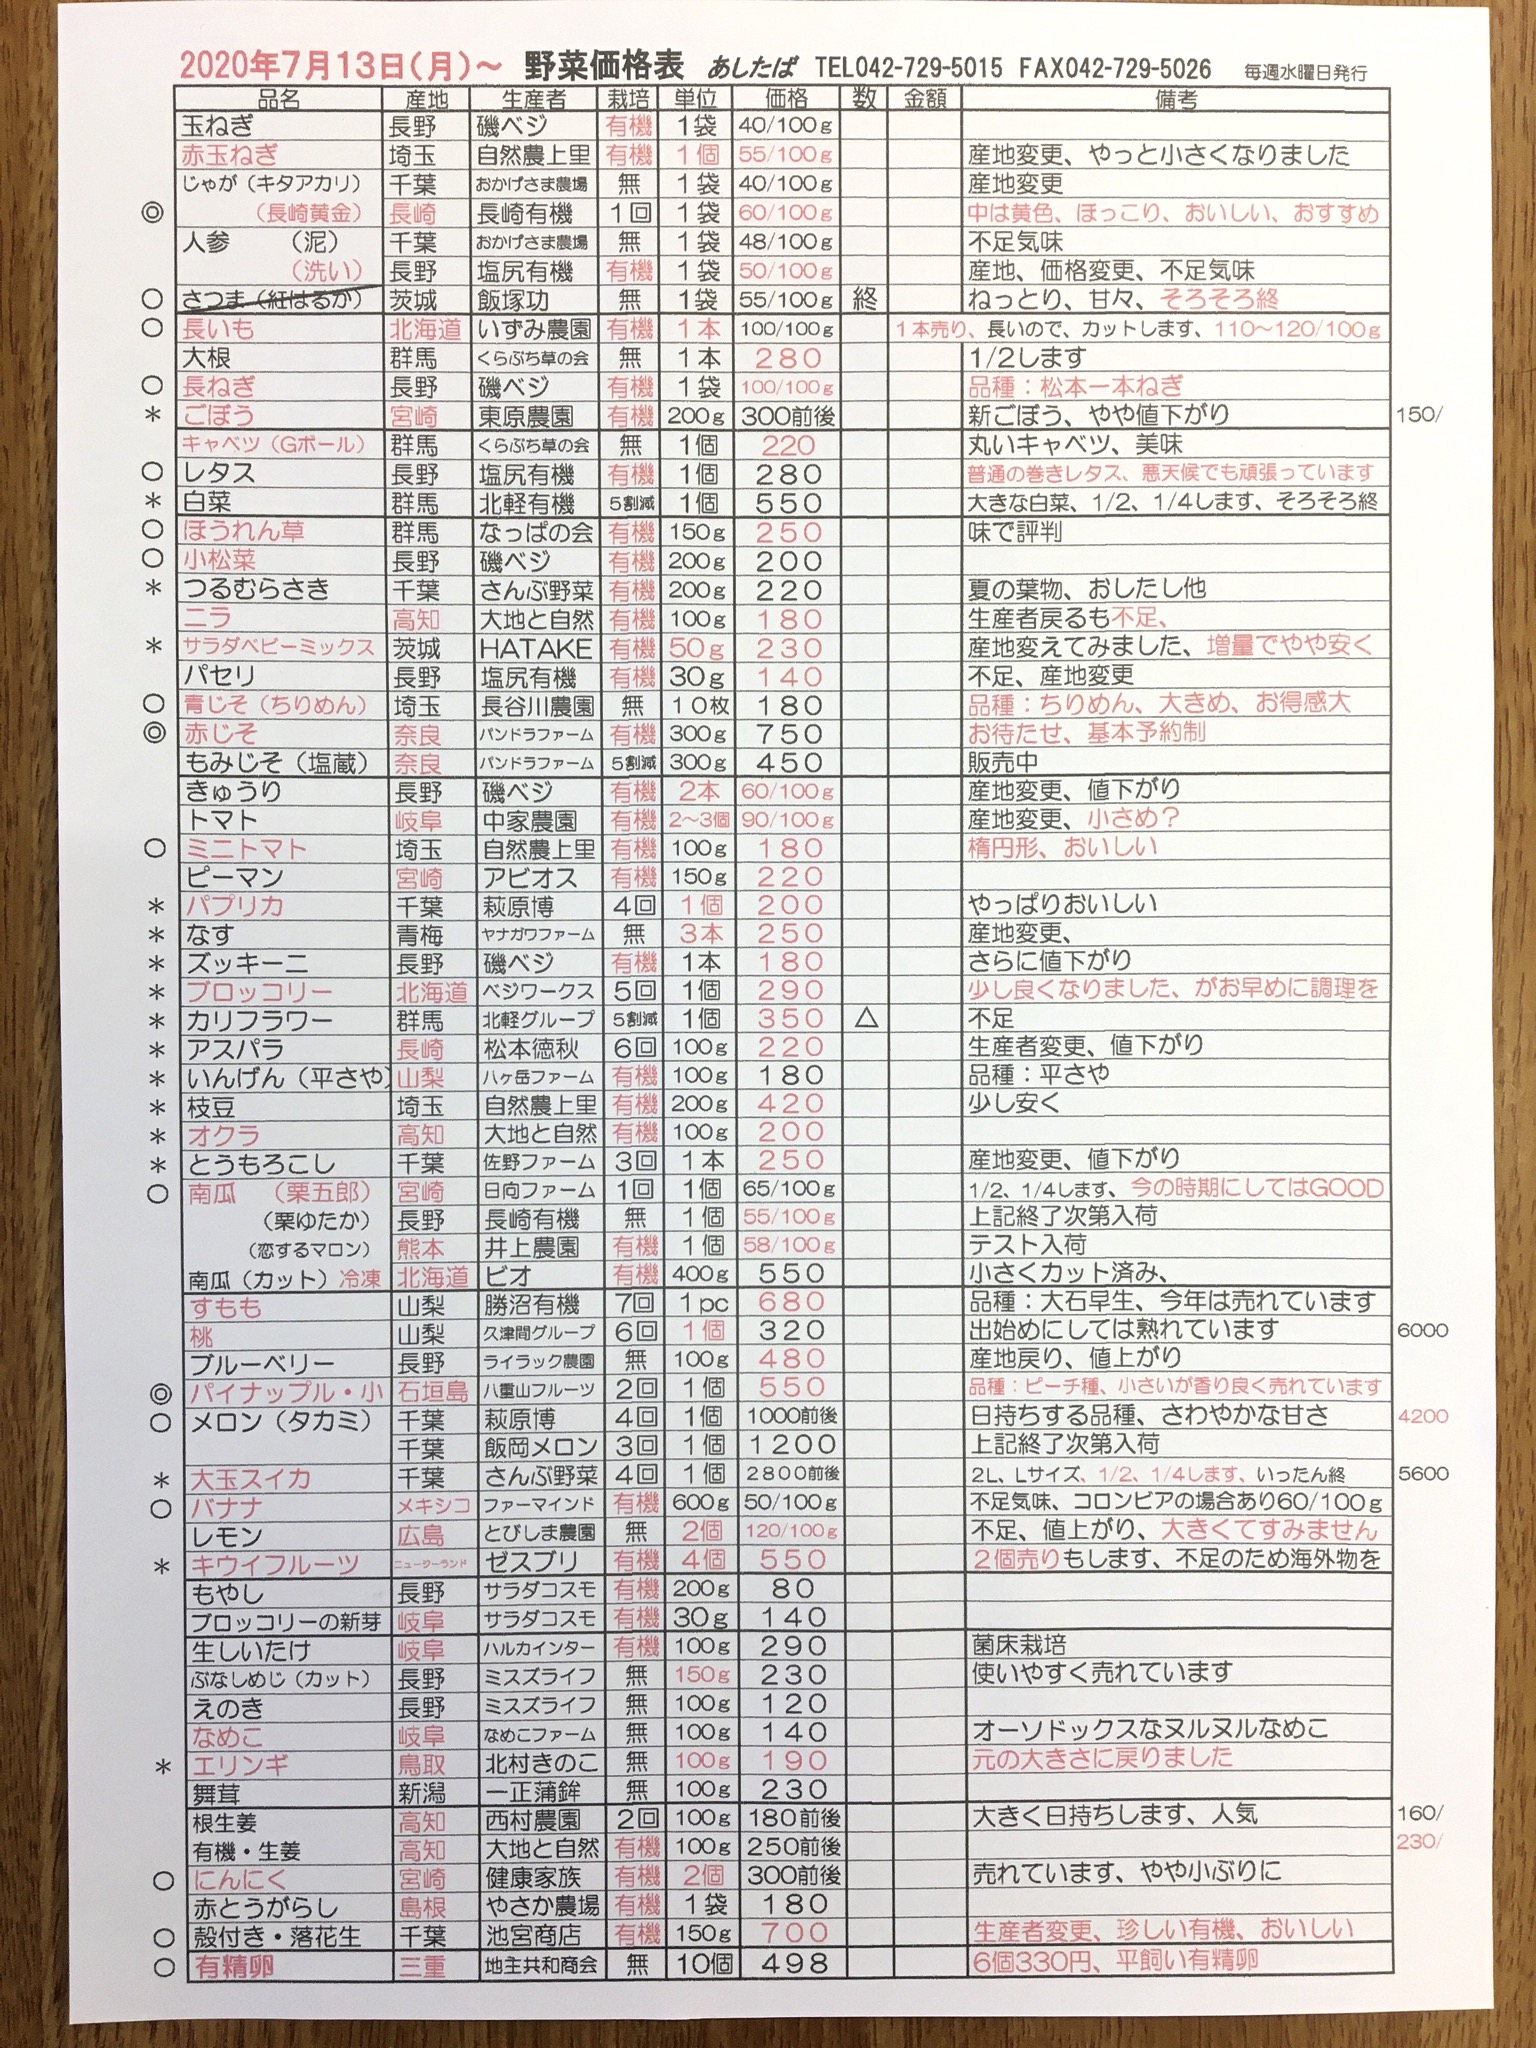 2020年7月13日(月)～ 野菜価格表 あしたば TEL042-729-5015 FAX042-729-5026 毎週水曜日発行
品名 産地 生産者 栽培 単位 価格 数 金額 備考
玉ねぎ 長野 磯ベジ 有機 1袋 40/100g
赤玉ねぎ 埼玉 自然農上里 有機 1個 55/100g 産地変更、やっと小さくなりました
じゃが(キタアカリ) 千葉 おかげさま農場 無 1袋 40/100g 産地変更
◎ (長崎黄金) 長崎 長崎有機 1回 1袋 60/100g 中は黄色、ほっこり、おいしい、おすすめ
人参 (泥) 千葉 おかげさま農場 無 1袋 48/100g 不足気味
(洗い) 長野 塩尻有機 有機 1袋 50/100g 産地、価格変更、不足気味
○ さつま(紅はるか) 茨城 飯塚功 無 1袋 55/100g 終 ねっとり、甘々、そろそろ終
○ 長いも 北海道 いずみ農園 有機 1本 100/100g 1本売り、長いので、カットします、110～120/100g
大根 群馬 くらぶち草の会 無 1本 280 1/2します
○ 長ねぎ 長野 磯ベジ 有機 1袋 100/100g 品種：松本一本ねぎ
* ごぼう 宮崎 東原農園 有機 200g 300前後 新ごぼう、やや値下がり 150/
キャベツ(Gボール) 群馬 くらぶち草の会 無 1個 220 丸いキャベツ、美味
○ レタス 長野 塩尻有機 有機 1個 280 普通の巻きレタス、悪天候でも頑張っています
* 白菜 群馬 北軽有機 5割減 1個 550 大きな白菜、1/2、1/4します、そろそろ終
○ ほうれん草 群馬 なっぱの会 有機 150g 250 味で評判
○ 小松菜 長野 磯ベジ 有機 200g 200
* つるむらさき 千葉 さんぶ野菜 有機 200g 220 夏の葉物、おしたし他
ニラ 高知 大地と自然 有機 100g 180 生産者戻るも不足、
* サラダベビーミックス 茨城 HATAKE 有機 50g 230 産地変えてみました、増量でやや安く
パセリ 長野 塩尻有機 有機 30g 140 不足、産地変更
○ 青じそ(ちりめん) 埼玉 長谷川農園 無 10枚 180 品種：ちりめん、大きめ、お得感大
◎ 赤じそ 奈良 パンドラファーム 有機 300g 750 お待たせ、基本予約制
もみじそ(塩蔵) 奈良 パンドラファーム 5割減 300g 450 販売中
きゅうり 長野 磯ベジ 有機 2本 60/100g 産地変更、値下がり
トマト 岐阜 中家農園 有機 2～3個 90/100g 産地変更、小さめ？
○ ミニトマト 埼玉 自然農上里 有機 100g 180 楕円形、おいしい
ピーマン 宮崎 アビオス 有機 150g 220
* パプリカ 千葉 萩原博 4回 1個 200 やっぱりおいしい
* なす 青梅 ヤナガワファーム 無 3本 250 産地変更、
* ズッキーニ 長野 磯ベジ 有機 1本 180 さらに値下がり
* ブロッコリー 北海道 ベジワークス 5回 1個 290 少し良くなりました、がお早めに調理を
* カリフラワー 群馬 北軽グループ 5割減 1個 350 △ 不足
* アスパラ 長崎 松本徳秋 6回 100g 220 生産者変更、値下がり
* いんげん(平さや) 山梨 八ヶ岳ファーム 有機 100g 180 品種：平さや
* 枝豆 埼玉 自然農上里 有機 200g 420 少し安く
* オクラ 高知 大地と自然 有機 100g 200
* とうもろこし 千葉 佐野ファーム 3回 1本 250 産地変更、値下がり
○ 南瓜 (栗五郎) 宮崎 日向ファーム 1回 1個 65/100g 1/2、1/4します、今の時期にしてはGOOD
(栗ゆたか) 長野 長崎有機 無 1個 55/100g 上記終了次第入荷
(恋するマロン) 熊本 井上農園 有機 1個 58/100g テスト入荷
南瓜(カット)冷凍 北海道 ビオ 有機 400g 550 小さくカット済み、
すもも 山梨 勝沼有機 7回 1pc 680 品種：大石早生、今年は売れています
桃 山梨 久津間グループ 6回 1個 320 出始めにしては熟れています 6000
ブルーベリー 長野 ライラック農園 無 100g 480 産地戻り、値上がり
◎ パイナップル・小 石垣島 八重山フルーツ 2回 1個 550 品種：ピーチ種、小さいが香り良く売れています
○ メロン(タカミ) 千葉 萩原博 4回 1個 1000前後 日持ちする品種、さわやかな甘さ 4200
千葉 飯岡メロン 3回 1個 1200 上記終了次第入荷
* 大玉スイカ 千葉 さんぶ野菜 4回 1個 2800前後 2L、Lサイズ、1/2、1/4します、いったん終 5600
○ バナナ メキシコ ファーマインド 有機 600g 50/100g 不足気味、コロンビアの場合あり60/100g
レモン 広島 とびしま農園 無 2個 120/100g 不足、値上がり、大きくてすみません
* キウイフルーツ ニュージーランド ゼスプリ 有機 4個 550 2個売りもします、不足のため海外物を
もやし 長野 サラダコスモ 有機 200g 80
ブロッコリーの新芽 岐阜 サラダコスモ 有機 30g 140
生しいたけ 岐阜 ハルカインター 有機 100g 290 菌床栽培
ぶなしめじ(カット) 長野 ミスズライフ 無 150g 230 使いやすく売れています
えのき 長野 ミスズライフ 無 100g 120
なめこ 岐阜 なめこファーム 無 100g 140 オーソドックスなヌルヌルなめこ
* エリンギ 鳥取 北村きのこ 無 100g 190 元の大きさに戻りました
舞茸 新潟 一正蒲鉾 無 100g 230
根生姜 高知 西村農園 2回 100g 180前後 大きく日持ちします、人気 160/
有機・生姜 高知 大地と自然 有機 100g 250前後 230/
○ にんにく 宮崎 健康家族 有機 2個 300前後 売れています、やや小ぶりに
赤とうがらし 島根 やさか農場 有機 1袋 180
○ 殻付き・落花生 千葉 池宮商店 有機 150g 700 生産者変更、珍しい有機、おいしい
○ 有精卵 三重 地主共和商会 無 10個 498 6個330円、平飼い有精卵